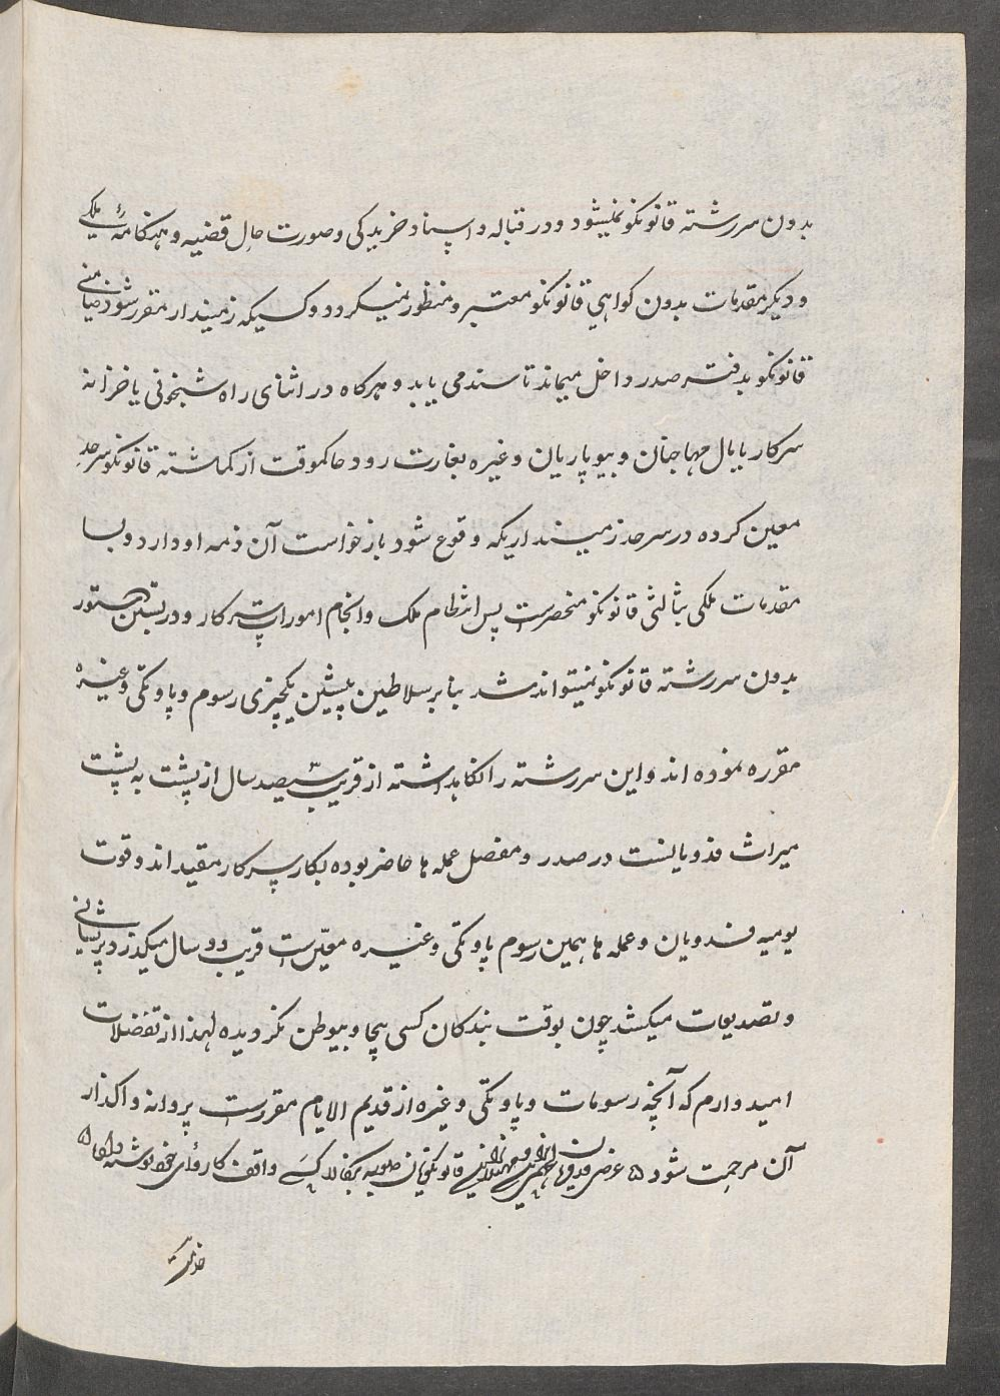 بدون سررشته قانونکو نمیشود و در قباله و اسناد خریدکی و صورت حال قضیه و هنکامهٔ ملکی
و دیکر مقدمات بدون کواهی قانونکو معتبر و منظور نمیکردد و کسیکه زمیندار مقرر شود ضامنی
قانونکو بدفتر صدر داخل میماند تا سند می یابد و هرکاه در اثنای راه شبخونی یا خزانه
سرکار یا مال مهاجنان و بیوپاریان و غیره بغارت رود حاکموقت از کماشته قانونکو سرحد
معین کرده در سرحد زمینداریکه وقوع شود بازخواست آن ذمه او دارد و بسا
مقدمات ملکی بثالثی قانونکو منحصرست پس انتظام ملک و انجام امورات سرکار و دربستن دستور
بدون سررشته قانونکو نمیتواند شد بنابر سلاطین پیشین یکچیزی رسوم و پاوتکی و غیره
مقرره نموده اند و این سررشته را نکاهداشته از قریب سیصد سال از پشت به پشت
میراث فدویانست در صدر و مفصل عمله ها حاضر بوده بکار سرکار مقید اند و قوت
یومیه فدویان و عمله ها همین رسوم پاوتکی و غیره معین ست قریب دو سال میکذرد پریشانی
و تصدیعات میکشد چون بوقت بندکان کسی بیجا و بیوطن نکردیده لهذا از تفضلات
امیدوارم که آنچه رسومات و پاوتکی و غیره از قدیم الایام مقررست پروانه واکذار
آن مرحمت شود ۵ عرضی فدویان قانونکویان صوبه بنکاله